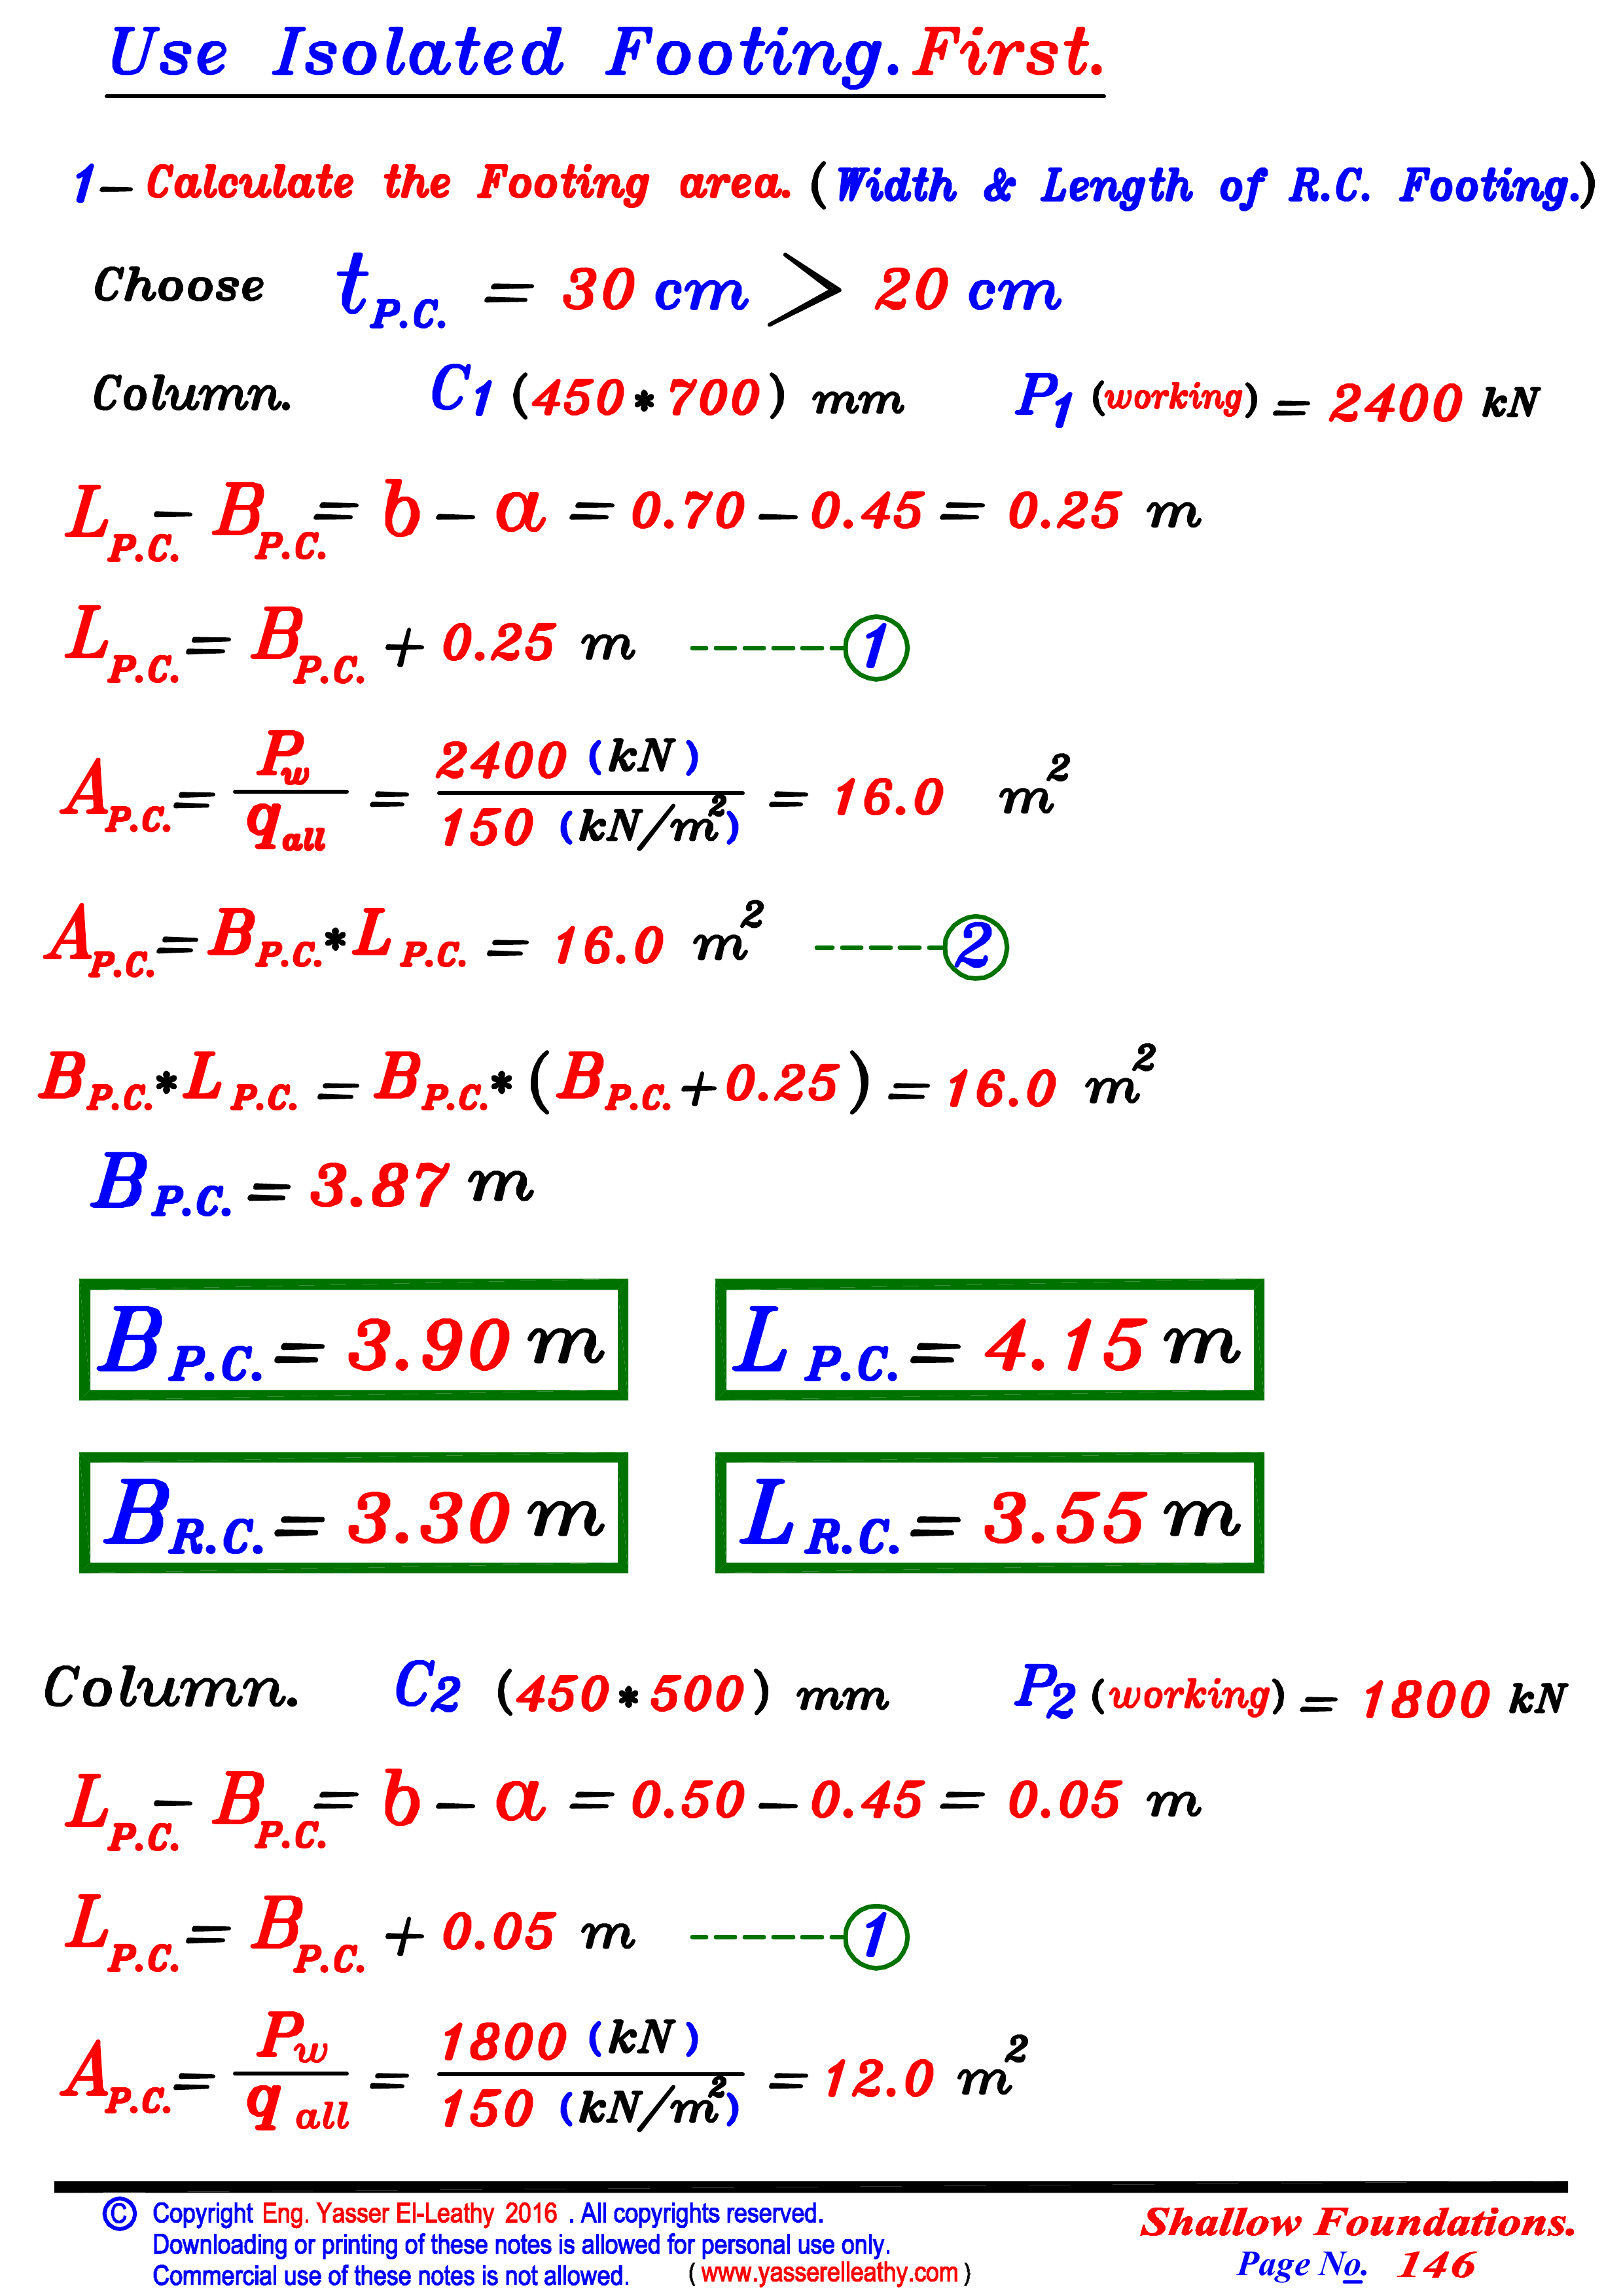 Use Isolated Footing. First.
1- Calculate the Footing area. (Width & Length of R.C. Footing.)
Choose t P.C. = 30 cm > 20 cm
Column. C1 (450*700) mm P1 (working) = 2400 kN
L P.C. - B P.C. = b - a = 0.70 - 0.45 = 0.25 m
L P.C. = B P.C. + 0.25 m ------ 1
A P.C. = P w / q all = 2400 (kN) / 150 (kN/m²) = 16.0 m²
A P.C. = B P.C. * L P.C. = 16.0 m² ------ 2
B P.C. * L P.C. = B P.C. * (B P.C. + 0.25) = 16.0 m²
B P.C. = 3.87 m
B P.C. = 3.90 m L P.C. = 4.15 m
B R.C. = 3.30 m L R.C. = 3.55 m
Column. C2 (450*500) mm P2 (working) = 1800 kN
L P.C. - B P.C. = b - a = 0.50 - 0.45 = 0.05 m
L P.C. = B P.C. + 0.05 m ------ 1
A P.C. = P w / q all = 1800 (kN) / 150 (kN/m²) = 12.0 m²
© Copyright Eng. Yasser El-Leathy 2016 . All copyrights reserved.
Downloading or printing of these notes is allowed for personal use only.
Commercial use of these notes is not allowed. ( www.yasserelleathy.com )
Shallow Foundations.
Page No. 146